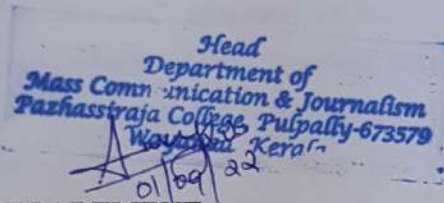 Head
Department of
Mass Comn unication & Journalism
Pazhassiraja College, Pulpally-673579
Wayanad Kerala
01/09/22